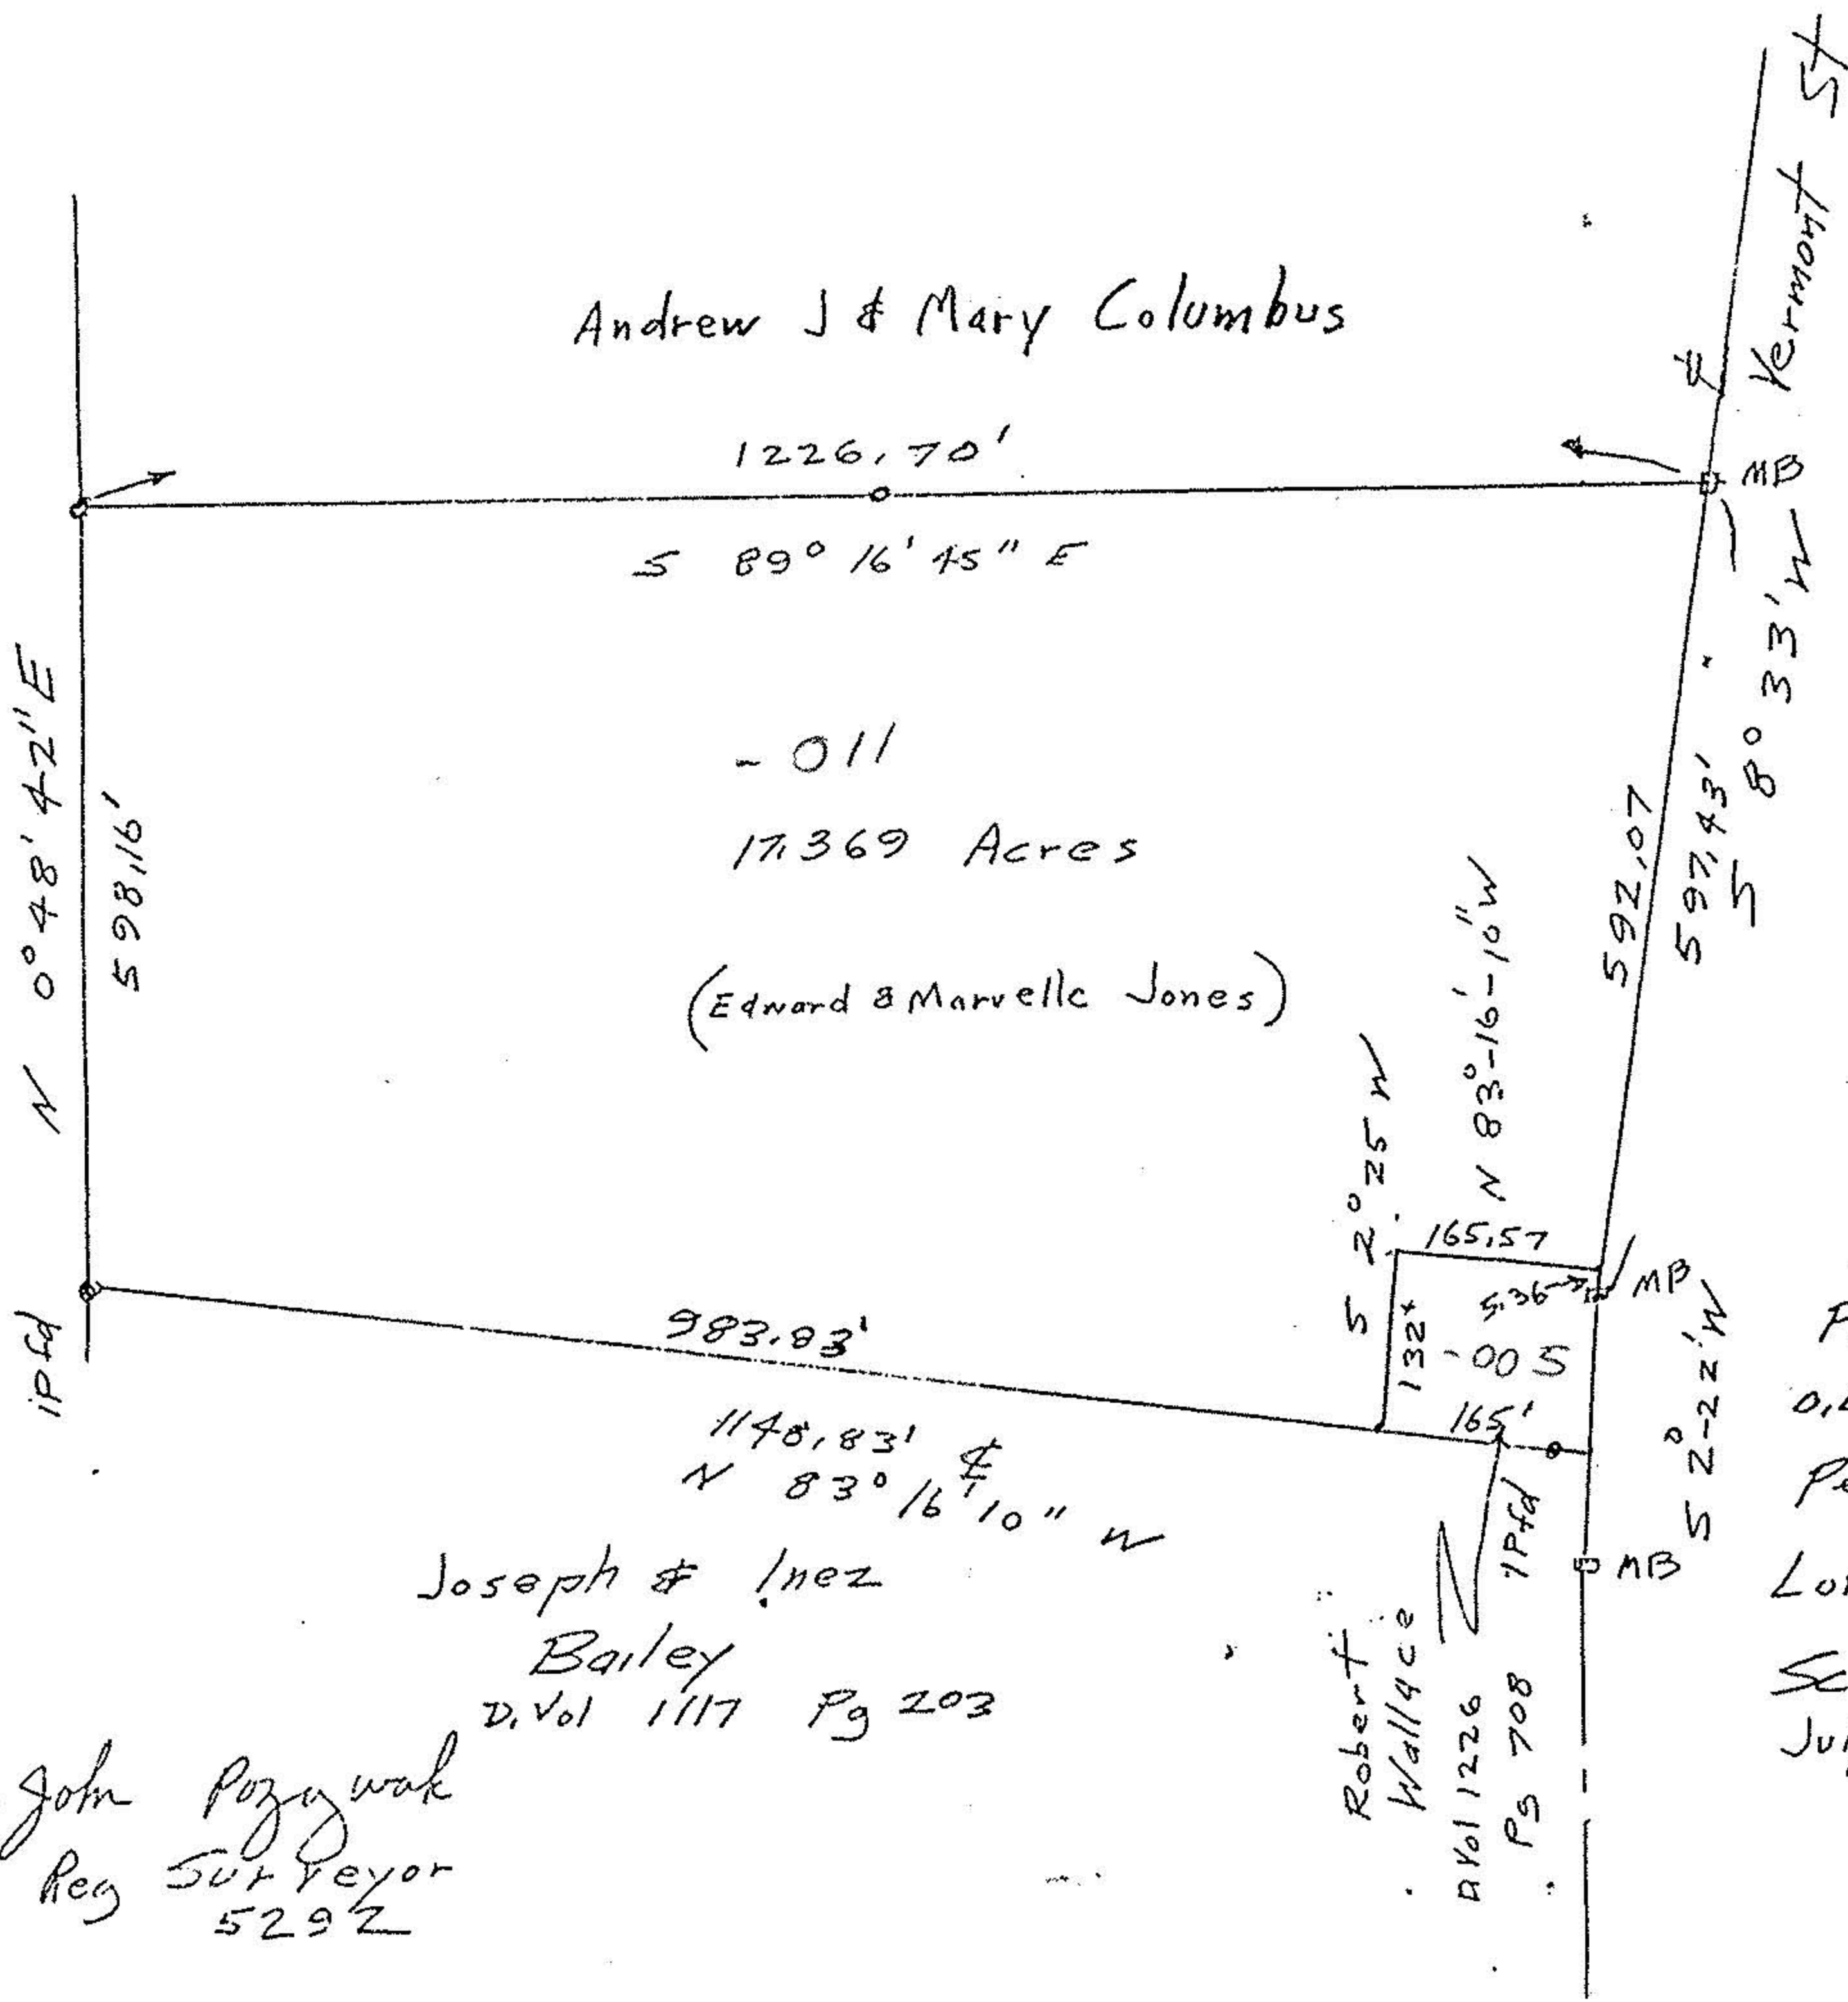 Vermont St
Andrew J & Mary Columbus
1226.70'
MB
S 89° 16' 45" E
S 8° 33' W
N 0° 48' 42" E
598.16'
- 011
17.369 Acres
(Edward & Marvelle Jones)
592.07
597.43'
N 83°-16'-10" W
S 2° 25 W
165.57
5.36
MB
132±
-005
165'
S 2°-22' W
iPfd
983.83'
1148.83' ₵
N 83° 16' 10" W
IPfd
MB
Joseph & Inez
Bailey
D. Vol 1117 Pg 203
Robert
Wallace
D Vol 1226
Pg 708
John
Reg Surveyor
5292